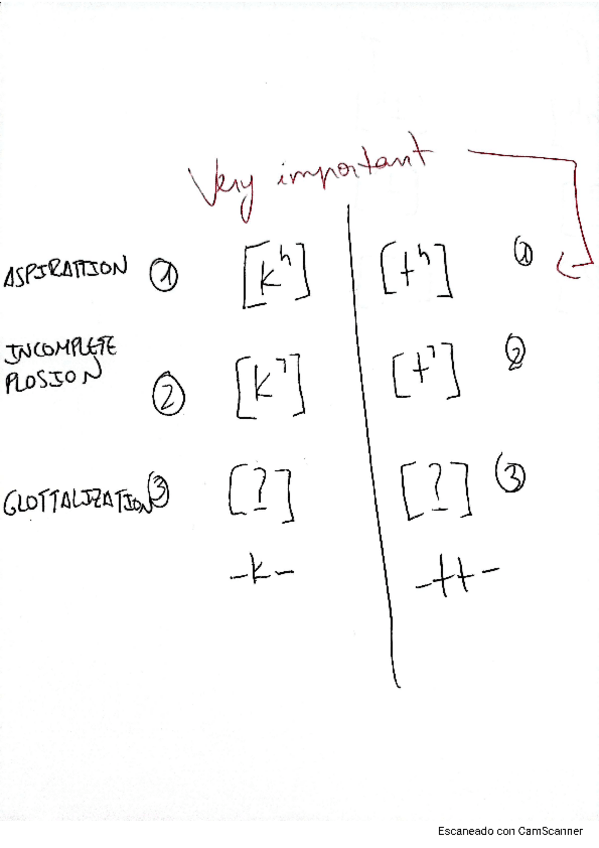 Very important
ASPIRATION ① [kʰ] [tʰ] ①
INCOMPLETE
PLOSION ② [k̚] [t̚] ②
GLOTTALIZATION ③ [ʔ] [ʔ] ③
-k- -tt-
Escaneado con CamScanner